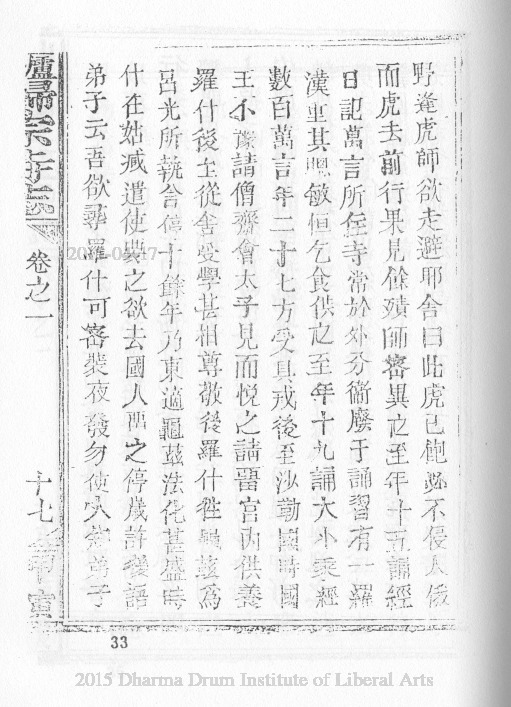 野逢虎師欲走避耶舍曰此虎已飽必不侵人俄
而虎去前行果見餘殘師密異之至年十五誦經
日記萬言所住寺常於外分衛廢于誦習有一羅
漢重其聰敏恒乞食供之至年十九誦大小乘經
數百萬言年二十七方受具戒後至沙勒國時國
王不豫請僧齋會太子見而悅之請畱宮內供養
羅什後至從舍受學甚相尊敬後羅什往龜茲為
呂光所執舍停十餘年乃東適龜茲法化甚盛時
什在姑臧遣使要之欲去國人畱之停歲許後語
弟子云吾欲尋羅什可密裝夜發勿使人知弟子
歸宗寺志
卷之一
十七
33
2015 Dharma Drum Institute of Liberal Arts